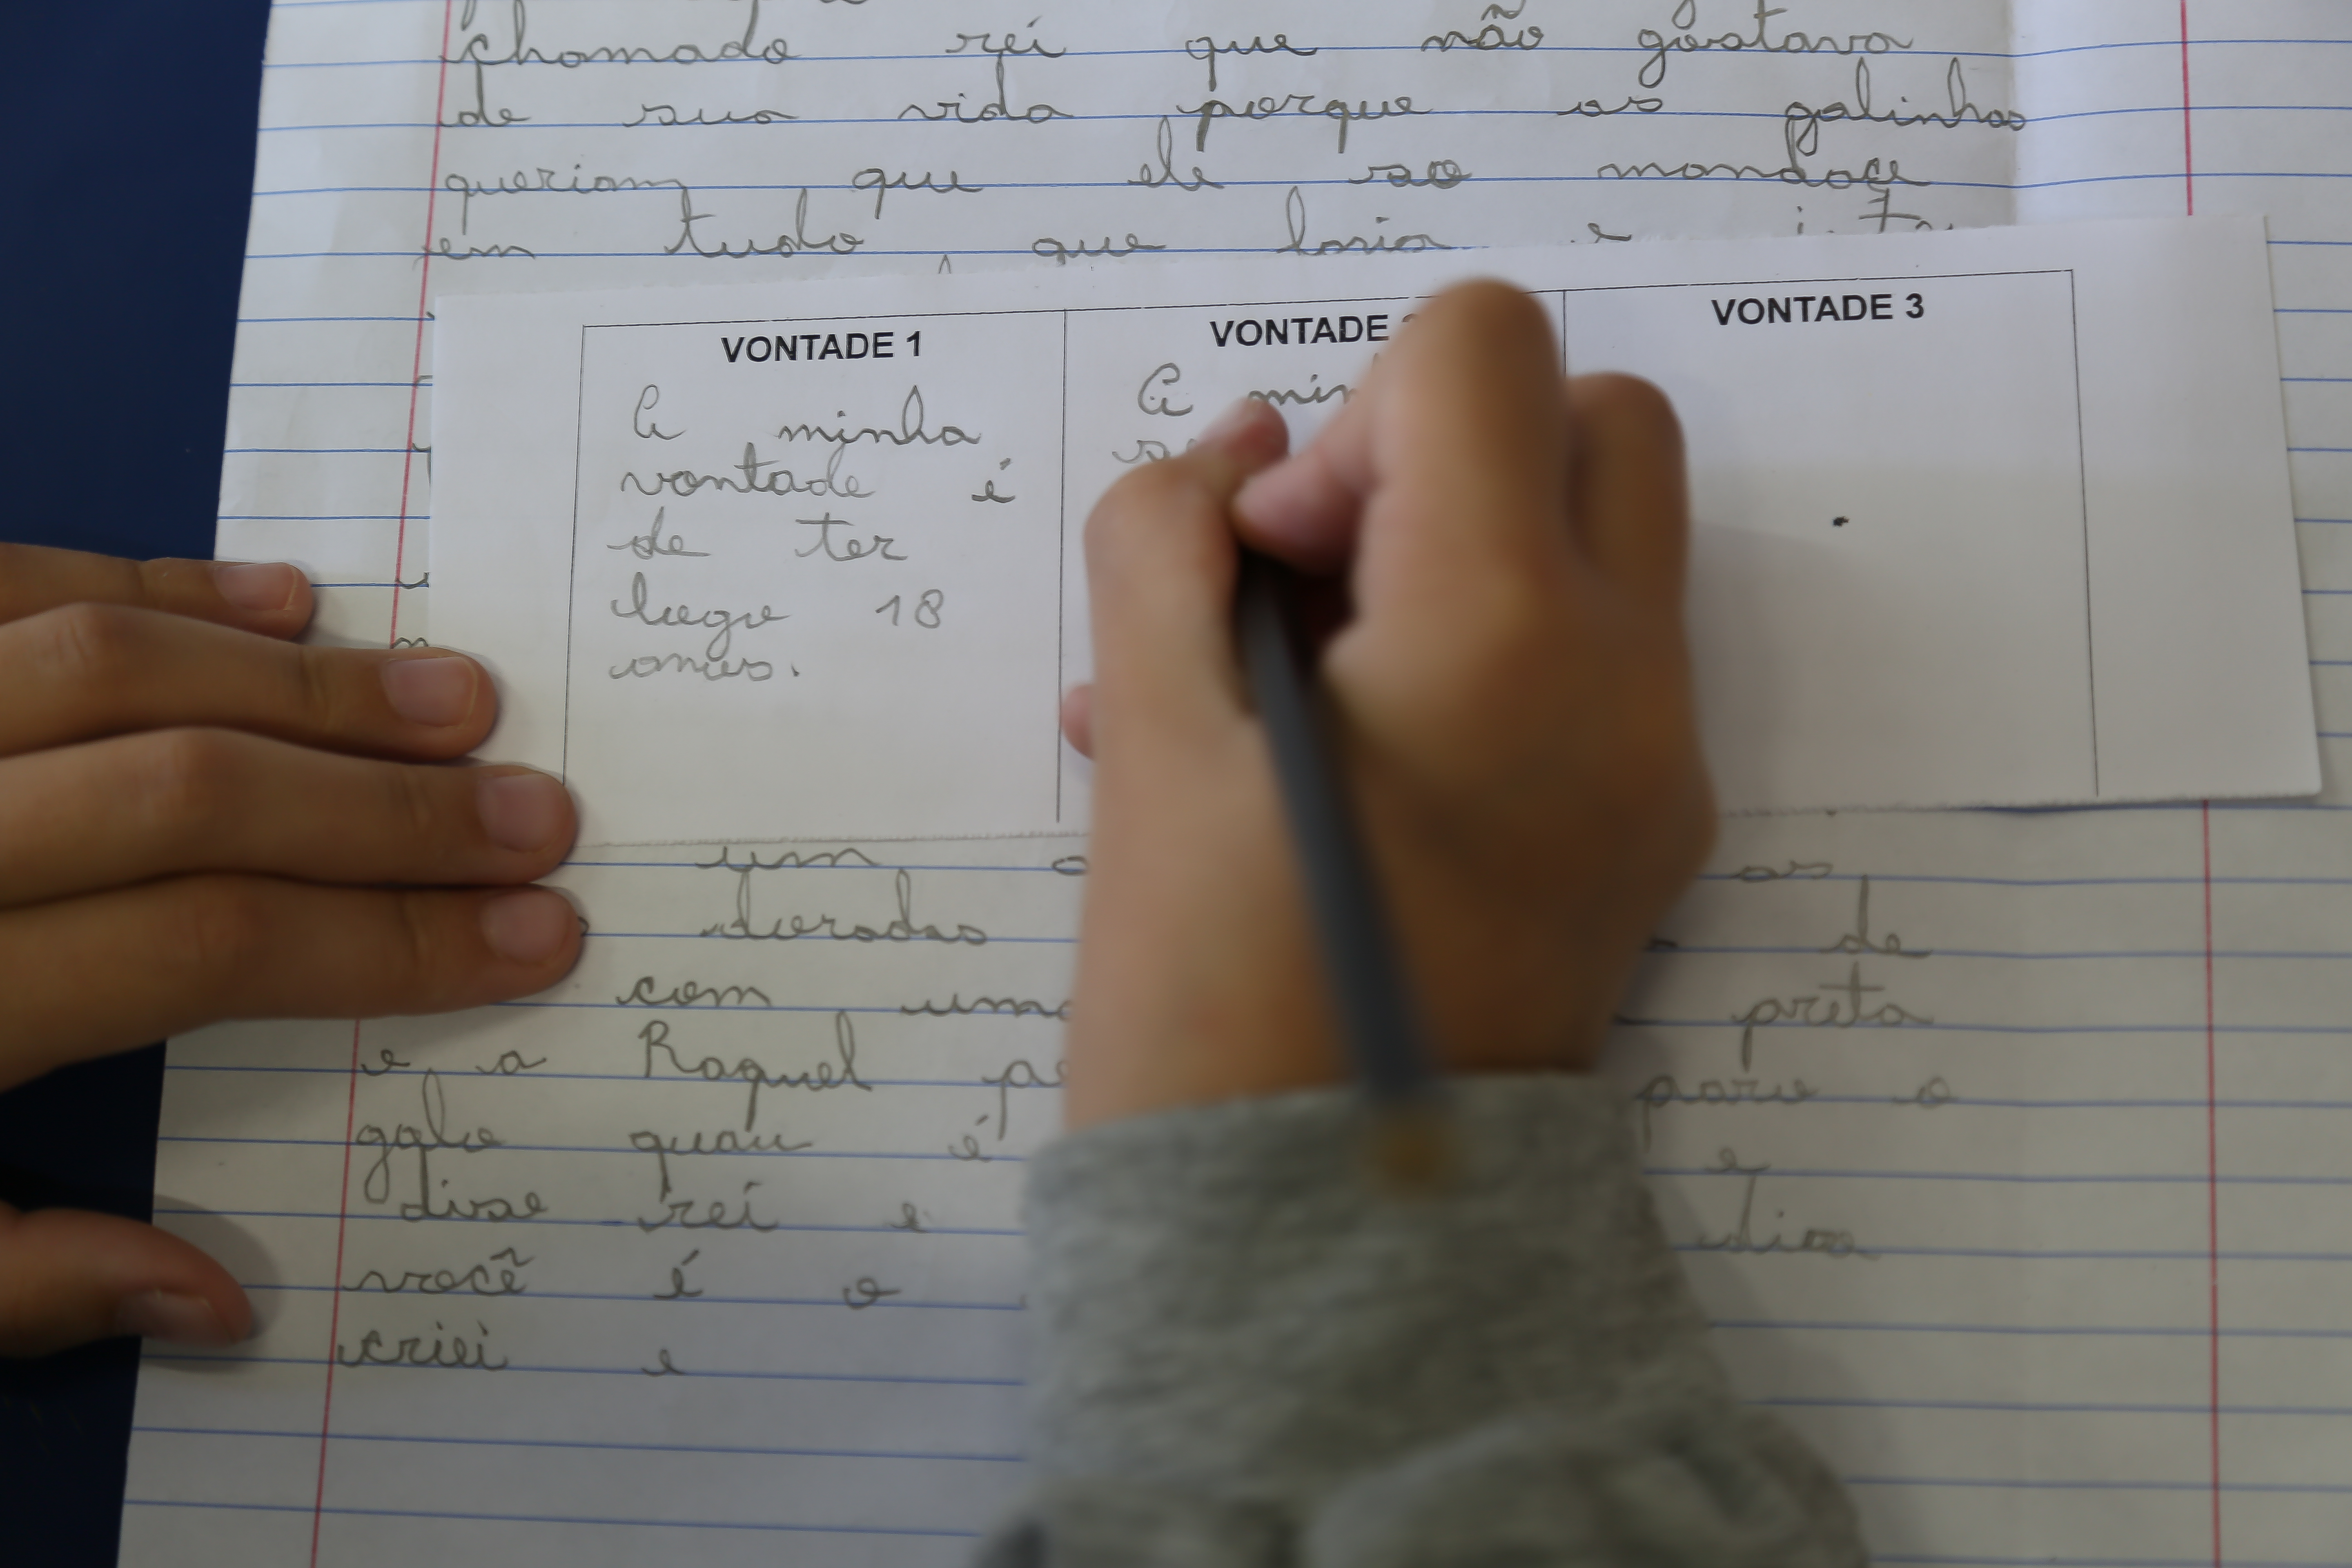 chamado rei que não gostava
de sua vida porque as galinhas
queriam que ele so mandace
em tudo que
VONTADE 1
A minha
vontade é
de ter
logo 18
anos.
VONTADE
A min
VONTADE 3
um as
douradas de
com uma preta
e a Raquel para o
galo quau é e
disse rei e disse
você é o
criei e